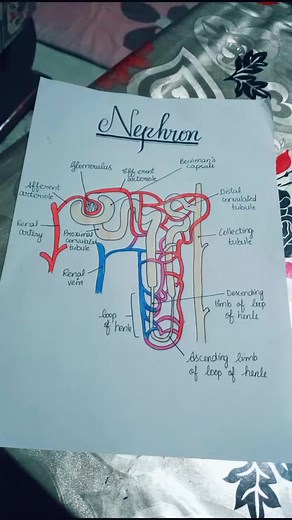 Nephron
Glomerulus
Efferent
arteriole
Bowman's
capsule
Afferent
arteriole
Distal
convulated
tubule
Renal
artery
Proximal
convulated
tubule
Collecting
tubule
Renal
vein
Descending
limb of loop
of henle
loop
of henle
Ascending limb
of loop of henle